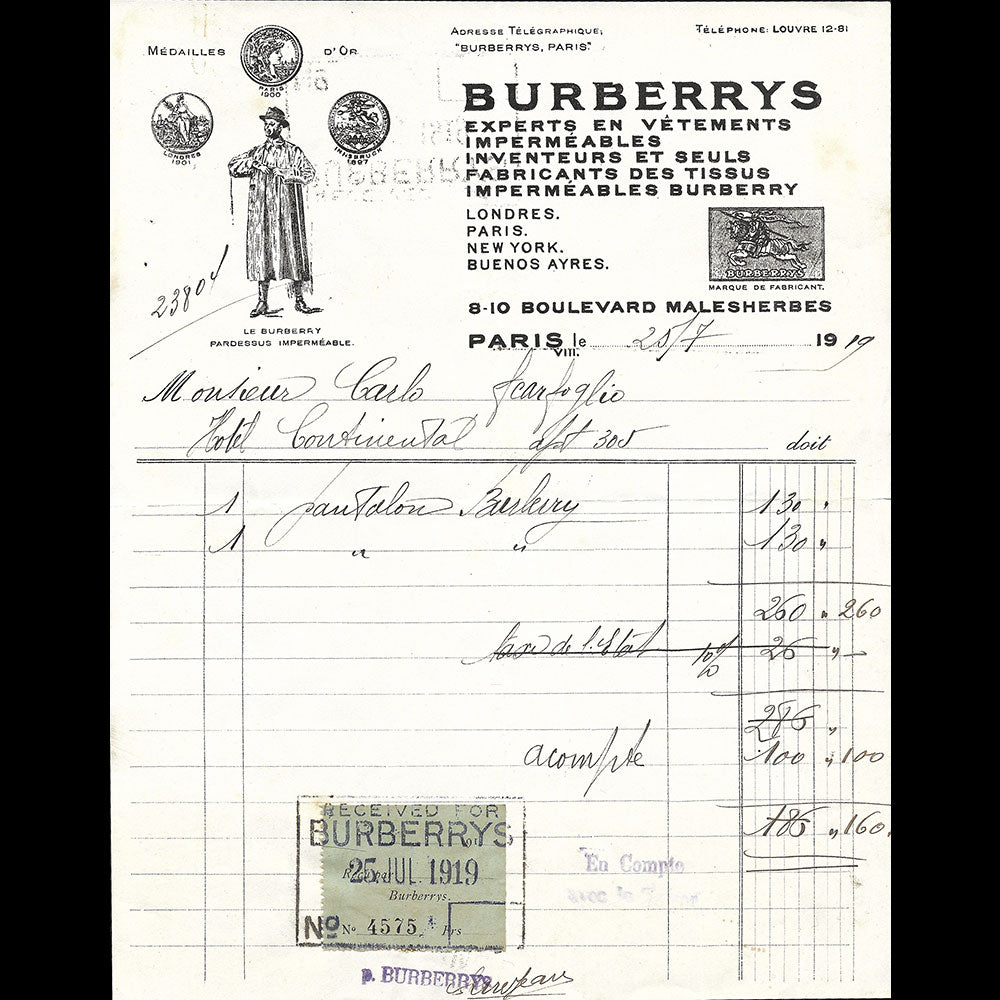 MÉDAILLES D'OR
PARIS
1900
LONDRES
1901
INNSBRUCK
1897
LE BURBERRY
PARDESSUS IMPERMÉABLE.
23804
ADRESSE TÉLÉGRAPHIQUE;
"BURBERRYS, PARIS".
TÉLÉPHONE: LOUVRE 12-81
BURBERRYS
EXPERTS EN VÊTEMENTS
IMPERMÉABLES
INVENTEURS ET SEULS
FABRICANTS DES TISSUS
IMPERMÉABLES BURBERRY
LONDRES.
PARIS.
NEW YORK.
BUENOS AYRES.
BURBERRYS
MARQUE DE FABRICANT.
8-10 BOULEVARD MALESHERBES
PARIS le 25/7 1919
VIII.
Monsieur Carlo Scarfoglio
Hotel Continental apt 305 doit
1 pantalon Burberry 130 "
1 " " 130 "
260 " 260
taxe de l'Etat 10% 26 " —
286 "
acompte 100 " 100
186 " 160.
RECEIVED FOR
BURBERRYS
25 JUL 1919
Burberrys.
Nº Nº 4575. Frs
En Compte
avec le
p. BURBERRYS